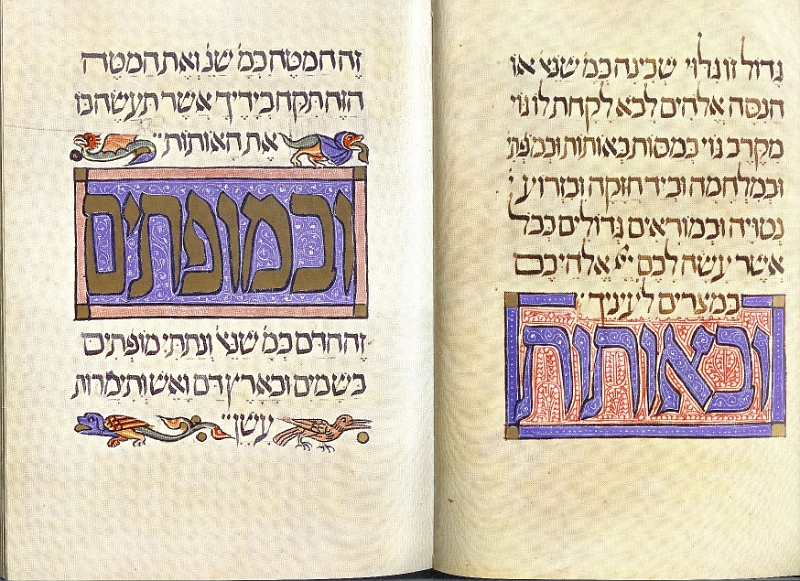 גדול זו גלוי שכינה כמ׳ שנא׳ או
הנסה אלהים לבא לקחת לו גוי
מקרב גוי במסות באותות ובמפת׳
ובמלחמה וביד חזקה ובזרוע
נטויה ובמוראים גדולים ככל
אשר עשה לכם אלהיכם
במצרים לעיניך
ובאותות
זה המטה כמ׳ שנ׳ ואת המטה
הזה תקח בידיך אשר תעשה בו
את האותות
ובמופתים
זה הדם כמ׳ שנא׳ ונתתי מופתים
בשמים ובארץ דם ואש ותימרות
עשן